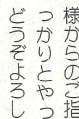 様からのご指
っかりとやっ
どうぞよろし